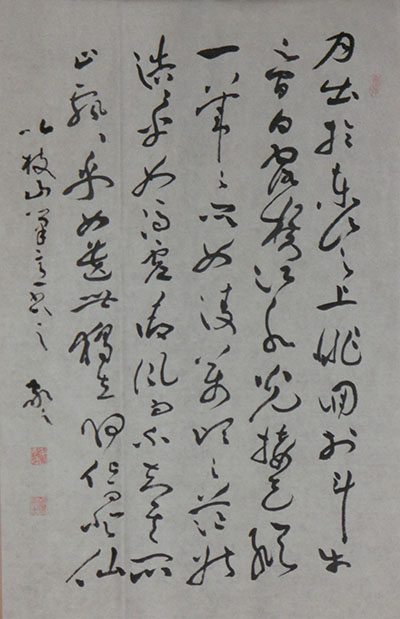 月出於東山之上徘徊於斗牛
之間白露橫江水光接天縱
一葦之所如凌萬頃之茫然
浩〻乎如馮虛御風而不知其所
止飄〻乎如遺世獨立羽化而登仙
以枝山筆意書之